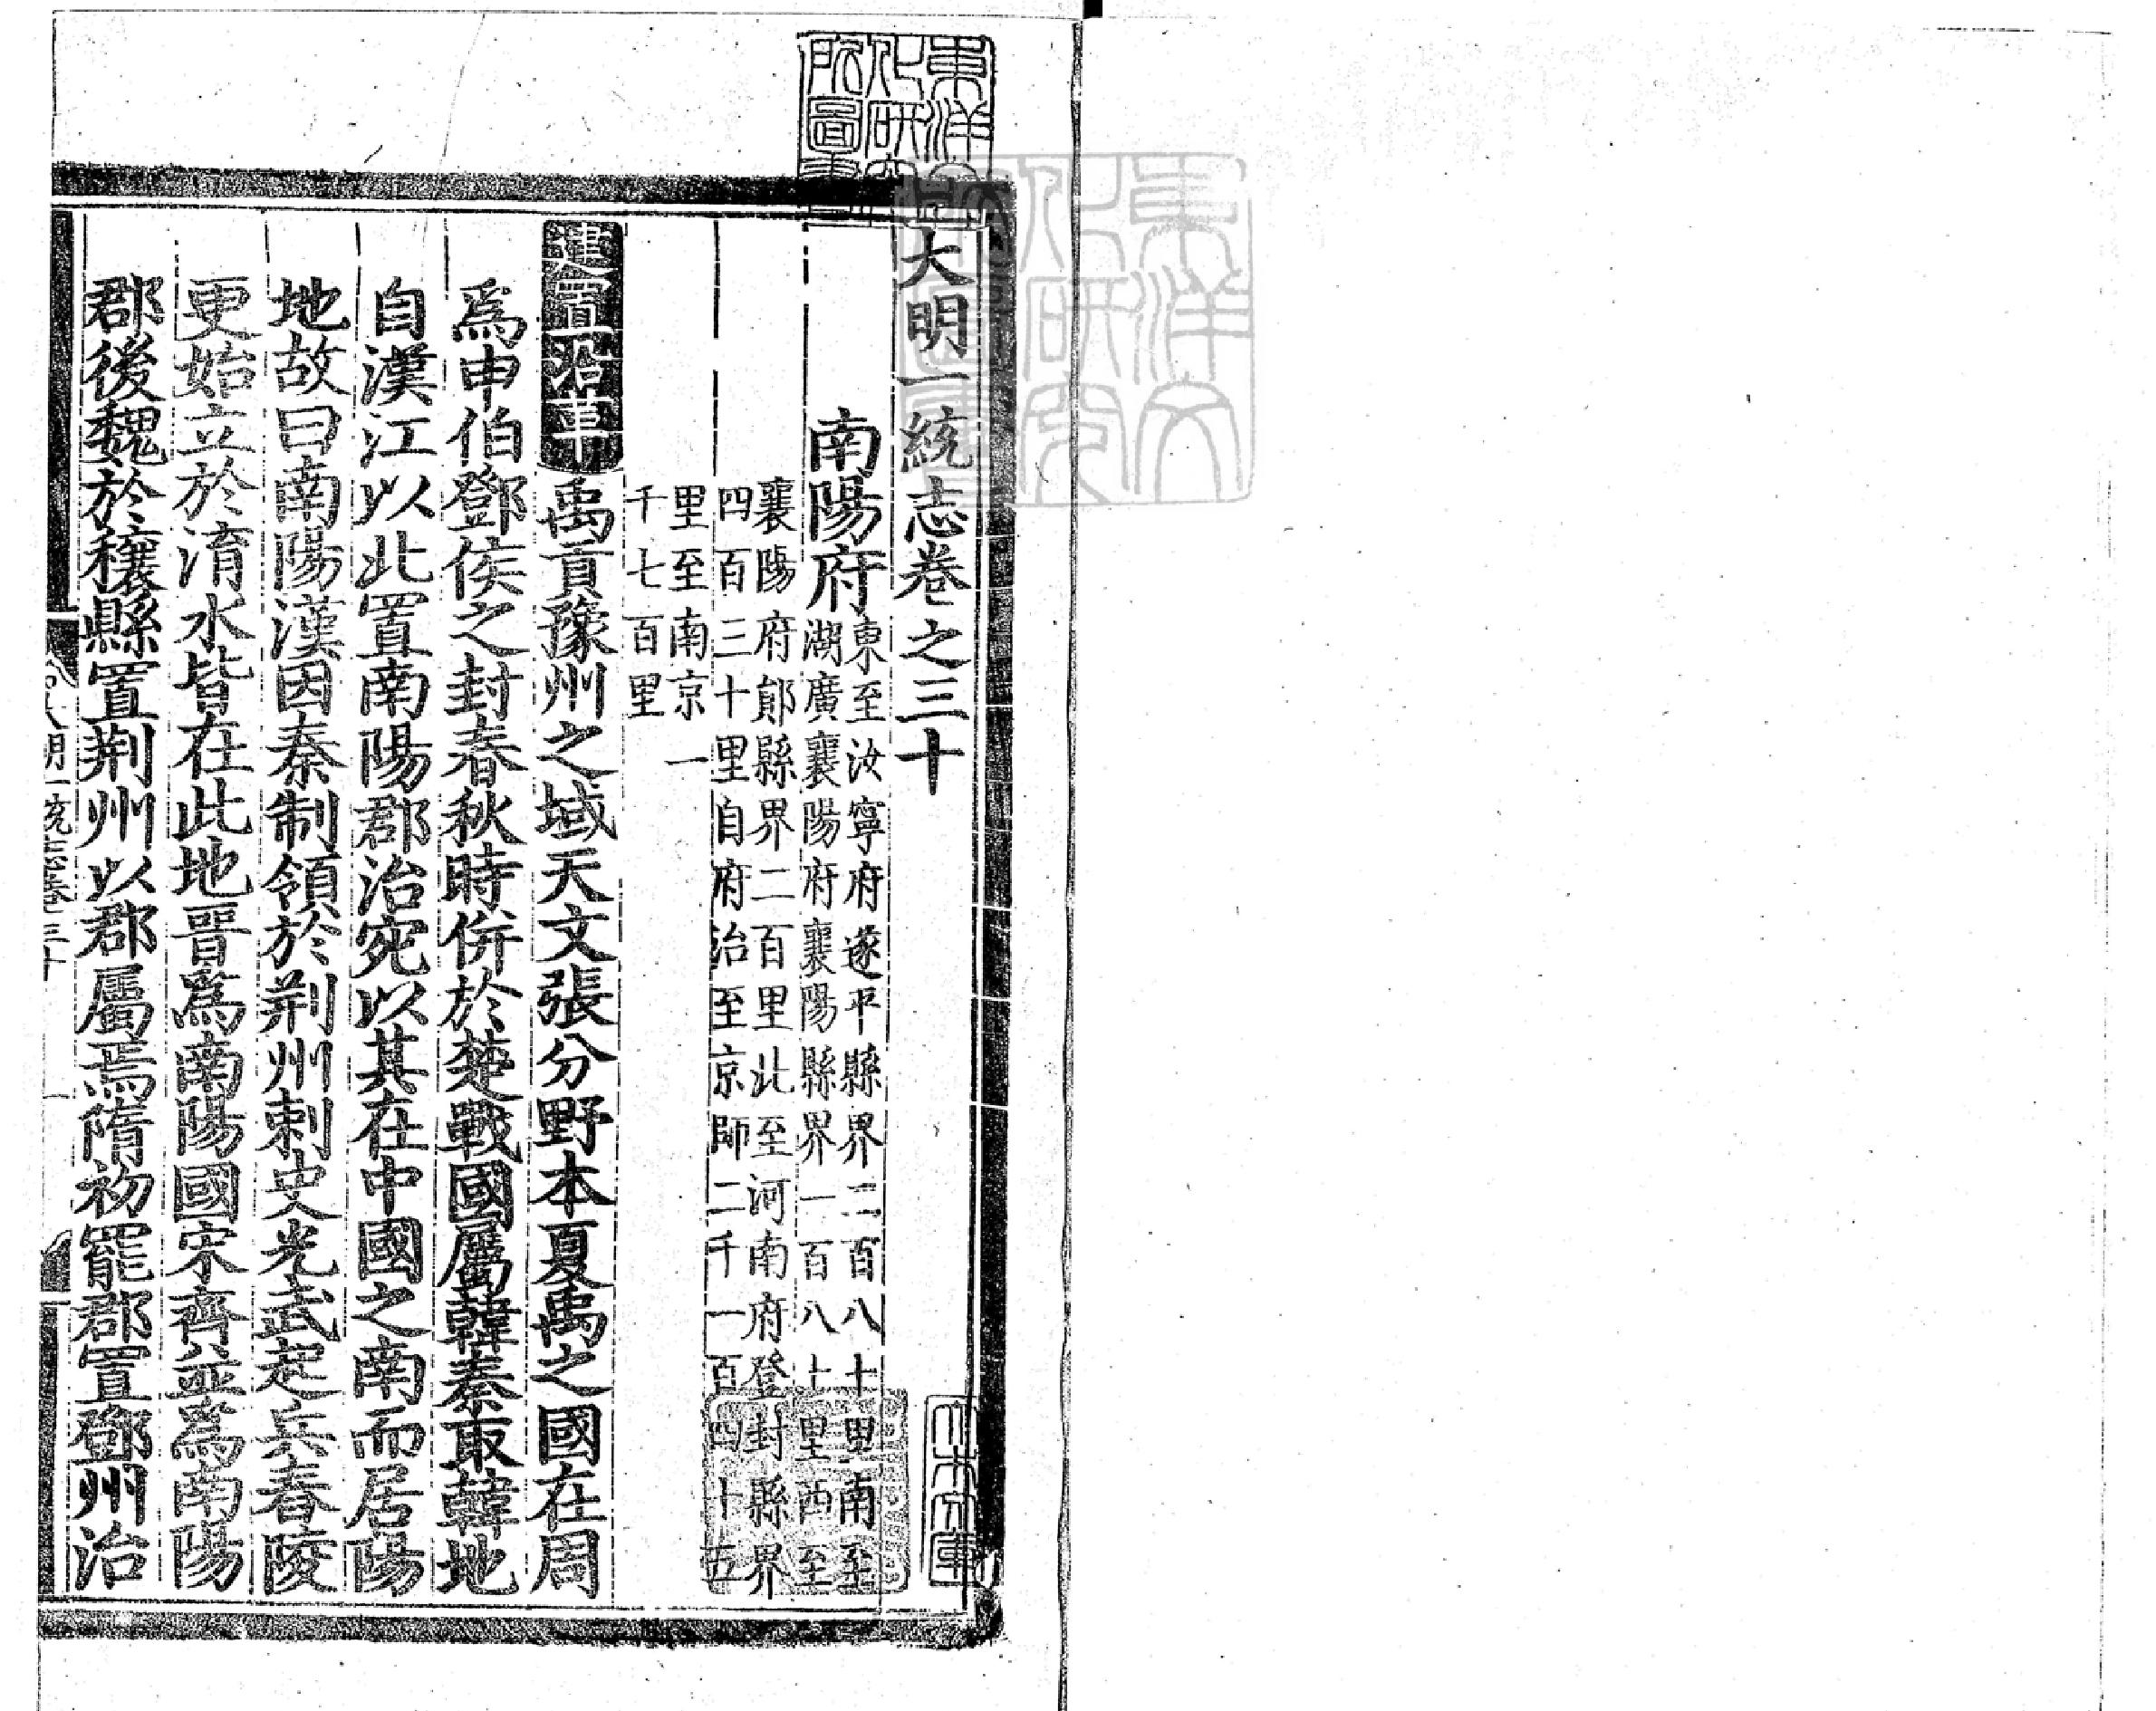 大明一統志卷之三十
南陽府
東至汝寧府遂平縣界二百八十里南至
湖廣襄陽府襄陽縣界一百八十里西至
襄陽府鄖縣界二百里北至河南府登封縣界
四百三十里自府治至京師二千一百四十五
里至南京一
千七百里
建置沿革
禹貢豫州之域天文張分野本夏禹之國在周
爲申伯鄧侯之封春秋時併於楚戰國屬韓秦取韓地
自漢江以北置南陽郡治宛以其在中國之南而居陽
地故曰南陽漢因秦制領於荆州刺史光武起兵舂陵
更始立於淯水皆在此地晉爲南陽國宋齊並爲南陽
郡後魏於穰縣置荆州以郡屬焉隋初罷郡置鄧州治
大明一統志卷三十
一
東洋文
化研究
所圖書
大木文庫